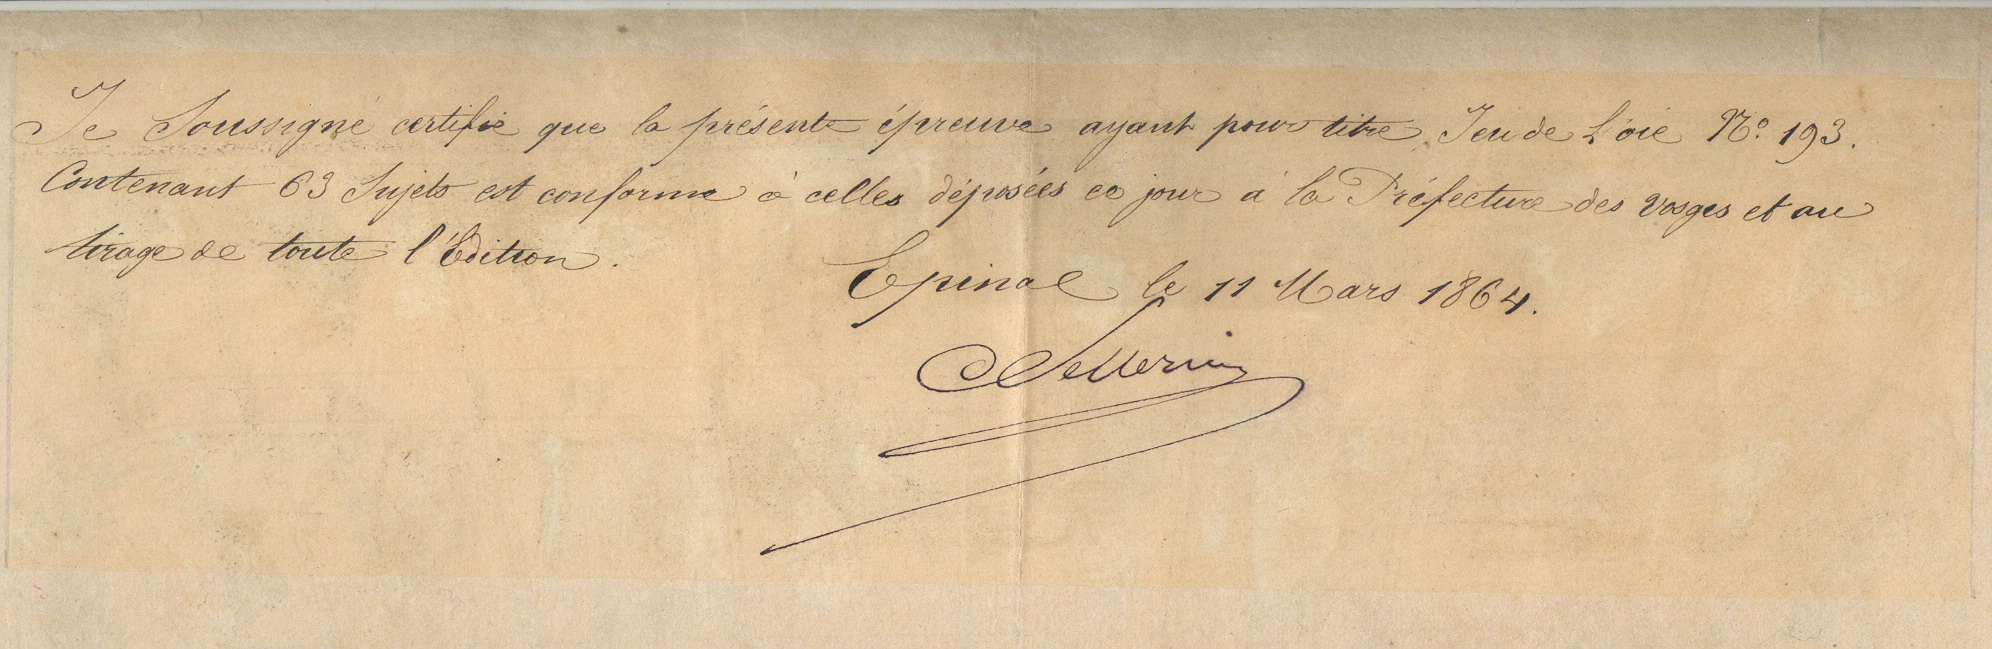 Je Soussigné certifie que la présente épreuve ayant pour titre, Jeu de L'oie N.o 193.
Contenant 63 Sujets est conforme à celles déposées ce jour à la Préfecture des Vosges et au
tirage de toute l'Édition.
Epinal le 11 Mars 1864.
Pellerin